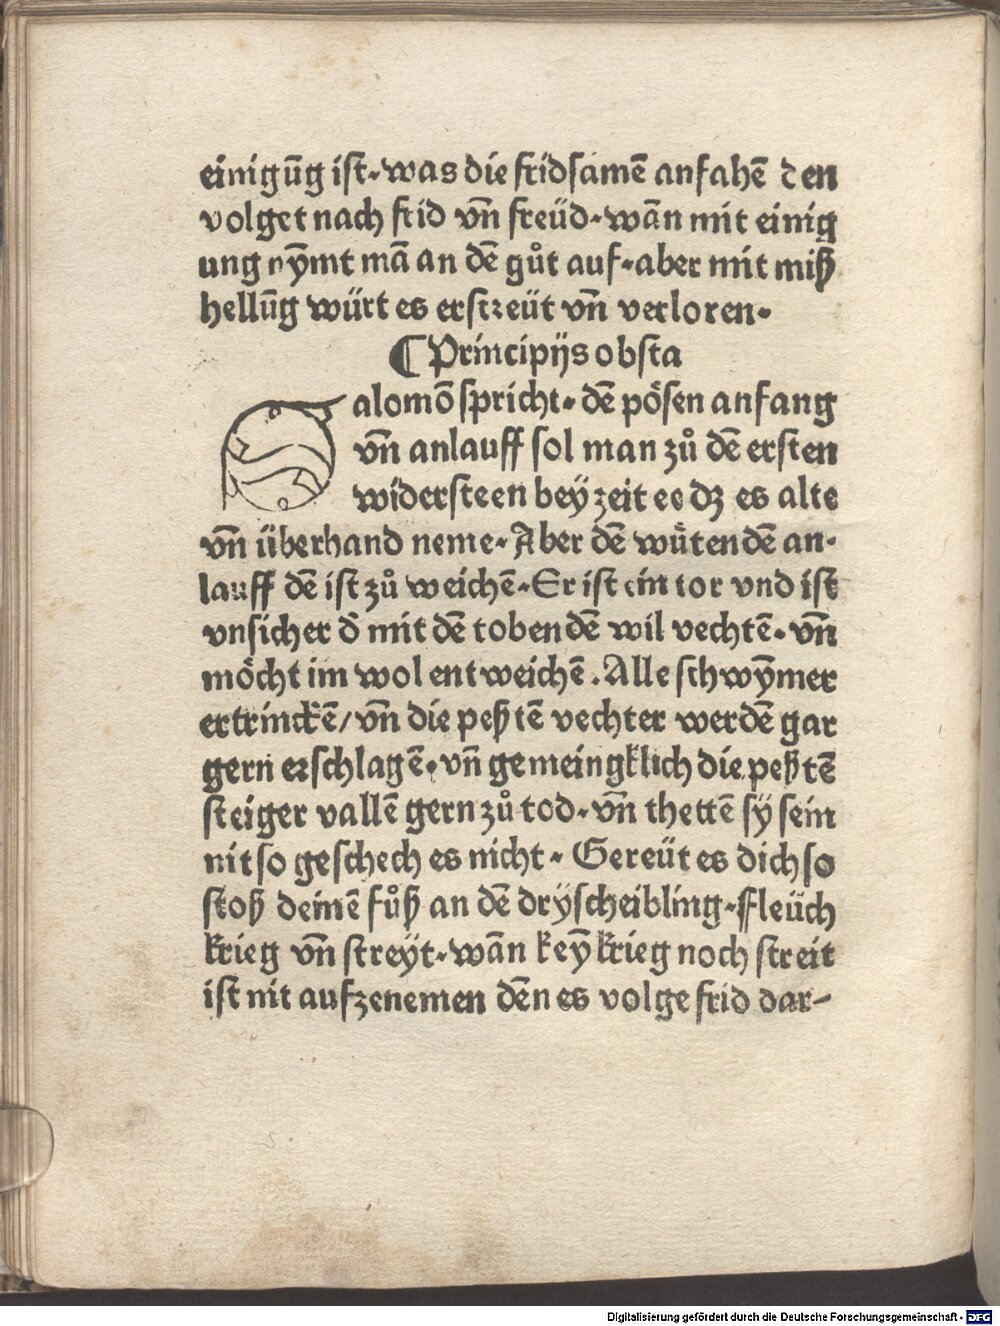 einigūg ist·was die fridsamē anfahē den
volget nach frid vn̄ freüd·wān mit einig
ung nȳmt mā an dē gůt auf·aber mit miß
hellūg würt es erstreüt vn̄ verloren·
¶ Principijs obsta
Salomō spricht·dē pösen anfang
vn̄ anlauff sol man zů dē ersten
widersteen beÿ zeit ee dz es alte
vn̄ überhand neme·Aber dē wütendē an-
lauff dē ist zů weichē·Er ist ein tor vnd ist
vnsicher d̄ mit dē tobendē wil vechtē·vn̄
möcht im wol entweichē·Alle schwȳmer
ertrinckē/vn̄ die peßtē vechter werdē gar
gern erschlagē·vn̄ gemeingklich die peßtē
steiger vallē gern zů tod·vn̄ thettē sÿ sein
nit so geschech es nicht·Gereüt es dich so
stoß deinē fůß an dē drÿscheibling·Fleüch
krieg vn̄ streÿt·wān keȳ krieg noch streit
ist nit aufzenemen dēn es volge frid dar-
Digitalisierung gefördert durch die Deutsche Forschungsgemeinschaft - DFG